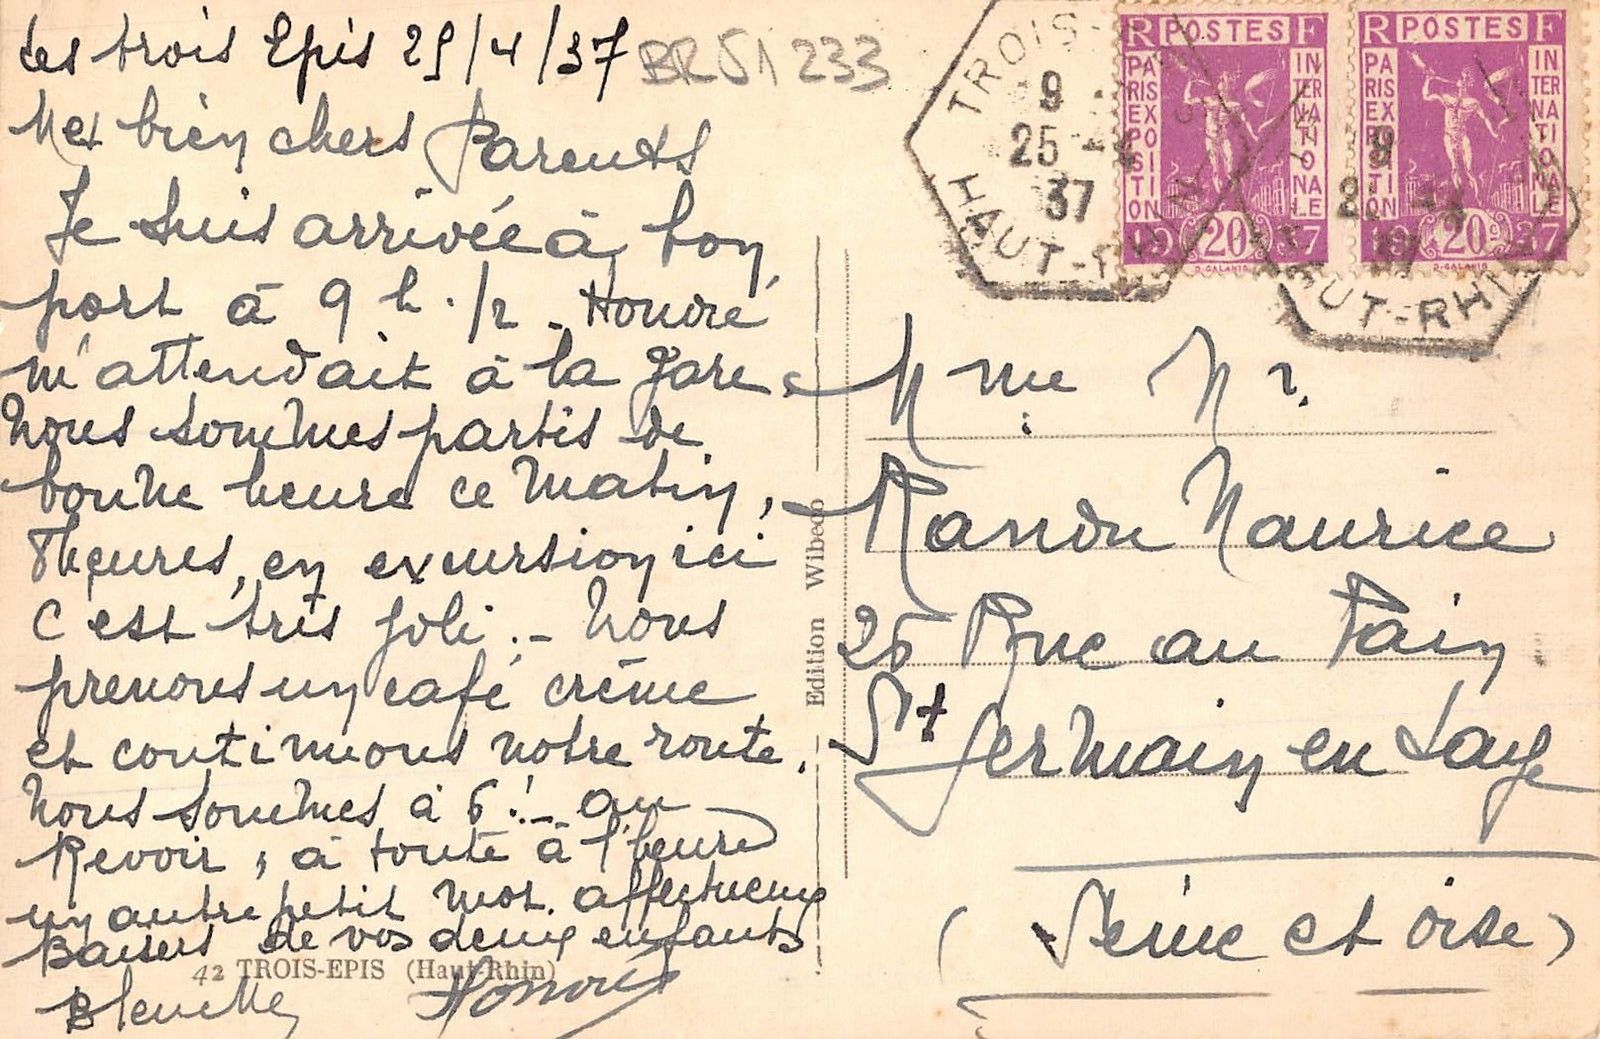 Les trois Epis 25/4/37
BR51 233
Mes bien chers Parents
Je suis arrivée à bon
port à 9 h. 1/2 - Honoré
m'attendait à la gare.
Nous sommes partis de
bonne heure ce matin,
heures, en excursion ici
c'est très joli.- Nous
prenons un café crème
et continuons notre route.
Nous sommes à 6!- au
Revoir, à toute à l'heure
un autre petit mot. affectueux
Baisers de vos deux enfants
42 TROIS-EPIS (Haut-Rhin)
Honoré
Edition Wibeco
TROIS-
9
25 -4
37
HAUT-RHIN
RF POSTES
PARIS EXPOSITION INTERNATIONALE
1937 20c
D. GALANIS
RF POSTES
PARIS EXPOSITION INTERNATIONALE
1937 20c
D. GALANIS
9
HAUT-RHIN
Mme Mr.
Maurice
25 Rue au Pain
St Germain en Laye
(Seine et Oise)